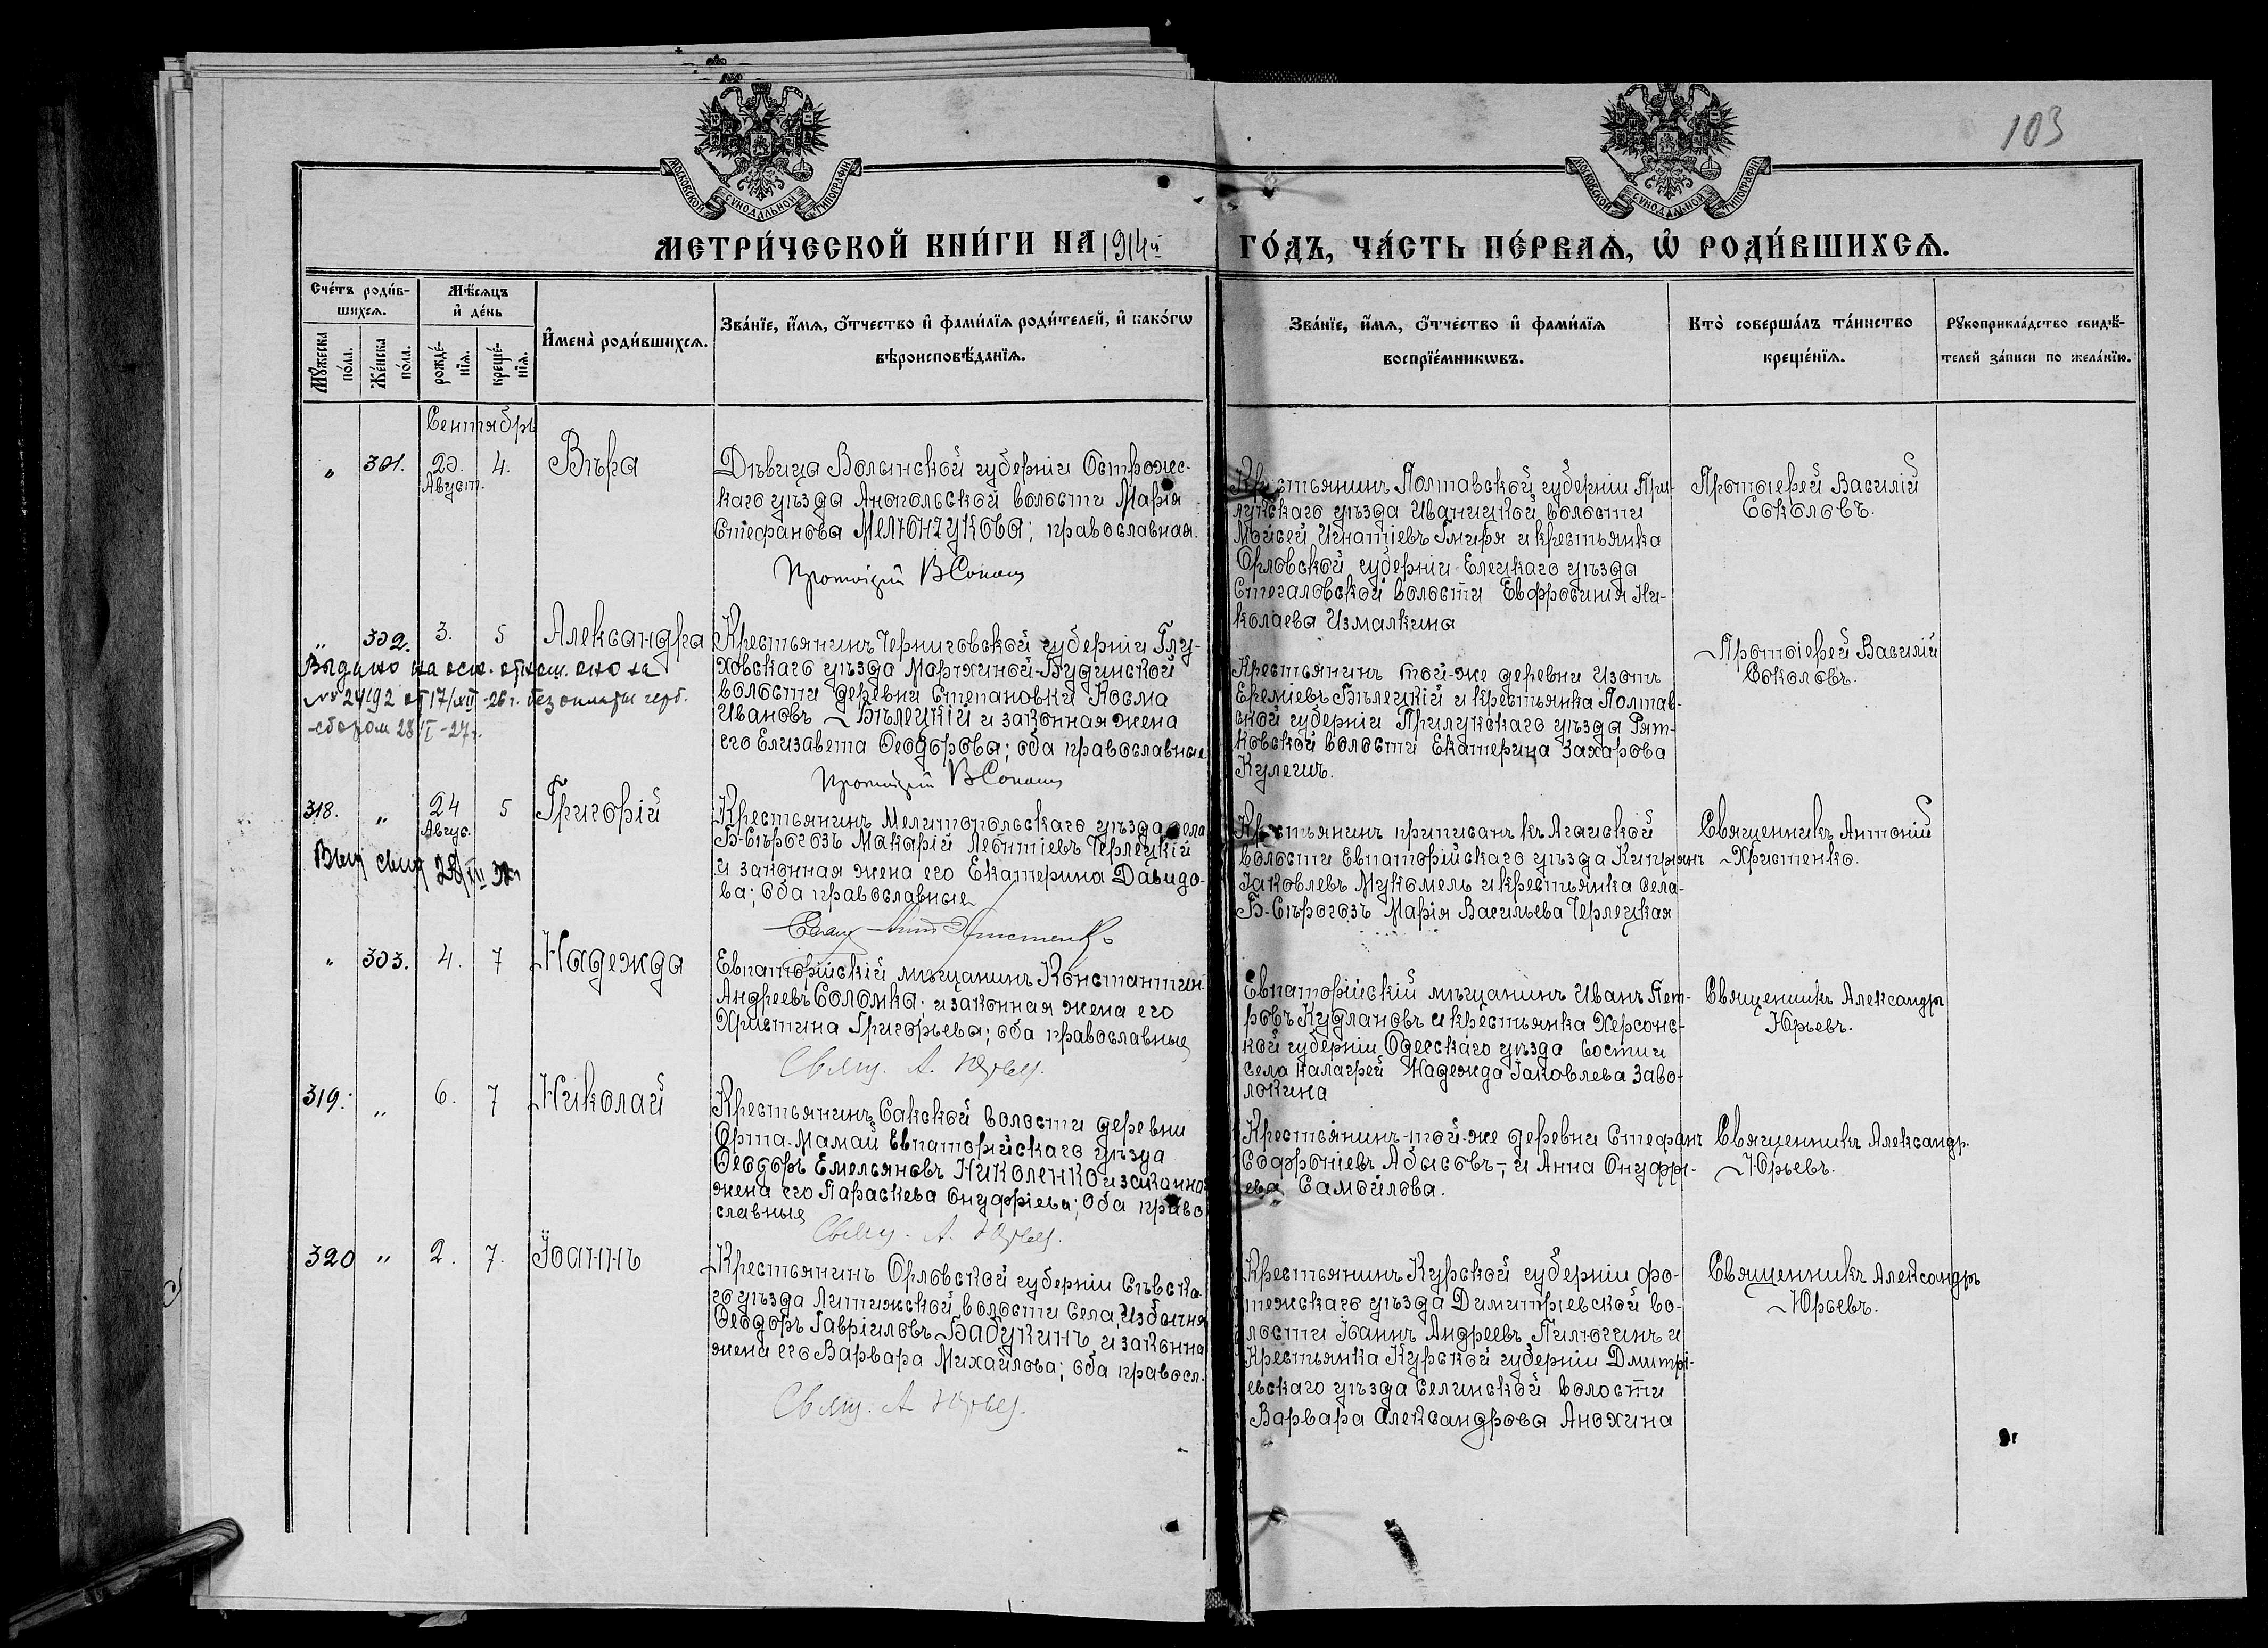 103
МОСКОВСКОЙ СѴНОДАЛЬНОЙ ТИПОГРАФІИ
МОСКОВСКОЙ СѴНОДАЛЬНОЙ ТИПОГРАФІИ
МЕТРИ́ЧЕСКОЙ КНИ́ГИ НА 1914й ГО́ДЪ, ЧА́СТЬ ПЕ́РВАѦ, Ѡ҆ РОДИ́ВШИХСѦ.
Сче́тъ роди́в-
шихсѧ.
Мꙋ́жеска по́ла.
Же́нска по́ла.
Мѣ́сѧцъ
и҆ де́нь
рожде́-
нїѧ.
креще́-
нїѧ.
И҆мена̀ роди́вшихсѧ.
Зва́нїе, и҆́мѧ, ѻ҆́тчество и҆ фами́лїѧ роди́телей, и҆ како́гѡ
вѣроисповѣ́данїѧ.
Зва́нїе, и҆́мѧ, ѻ҆́тчество и҆ фами́лїѧ
воспрїе́мникѡвъ.
Кто̀ соверша́лъ та́инство
креще́нїѧ.
Рꙋкоприкла́дство свидѣ́-
телей за́писи по жела́нїю.
Сентябрь
" 301. 29. Август. 4. Вѣра
Дѣвица Волынской губерніи Острожес-
каго уѣзда Анопольской волости Марія
Стефанова Мелюнчукова; православная.
Протоіерей В Соколов
Крестьянинъ Полтавской губерніи При-
лукскаго уѣзда Иваницкой волости
Мойсей Игнатіевъ Гмиря и крестьянка
Орловской губерніи Елецкаго уѣзда
Стегаловской волости Евфросинія Ни-
колаева Измалкина
Протоіерей Василій
Соколовъ.
" 302. 3. 5 Александра
Выдано на осн.
№ 24192 от 17/XII-26 г. без оплаты герб.
сбором 28/I-27г.
Крестьянинъ Черниговской губерніи Глу-
ховскаго уѣзда Марчихиной-Будинской
волости деревни Степановки Косма
Ивановъ Бѣлецкій и законная жена
его Елизавета Ѳеодорова; оба православные
Протоіерей В Соколов
Крестьянинъ той-же деревни Изотъ
Ереміевъ Бѣлецкій и крестьянка Полтав-
ской губерніи Прилукскаго уѣзда Рят-
ковской волости Екатерина Захарова
Кулегик.
Протоіерей Василій
Соколовъ.
318. " 24 Авгус. 5 Григорій
Крестьянинъ Мелитопольскаго уѣзда села
Б-Сѣрогозъ Макарій Леонтіевъ Черлецкій
и законная жена его Екатерина Давидо-
ва; оба православные
Свящ Ант Христенко
Крестьянинъ приписанъ къ Агайской
волости Евпаторійскаго уѣзда Кипріянъ
Іаковлевъ Мукомель и крестьянка села-
Б-Сѣрогозъ Марія Васильева Черлецкая
Священникъ Антоній
Христенко.
" 303. 4. 7 Надежда
Евпаторійскій мѣщанинъ Константин
Андреевъ Соломка; и законная жена его
Христина Григорьева; оба православные
Свящ. А. Юрьев.
Евпаторійскій мѣщанинъ Иванъ Пет-
ровъ Кудлановъ и крестьянка Херсонс-
кой губерніи Одесскаго уѣзда
села Калагрей Надежда Іаковлева Заво-
локина
Священникъ Александръ
Юрьевъ.
319. " 6. 7 Николай
Крестьянинъ Сакской волости деревни
Орта-Мамай Евпаторійскаго уѣзда
Ѳеодоръ Емельяновъ Николенко и законная
жена его Параскева Онуфріева; оба право
славные
Свящ. А. Юрьев.
Крестьянинъ той-же деревни Стефанъ
Софроніевъ Абасовъ-, и Анна Онуфрі-
ева Самойлова.
Священникъ Александр.
Юрьевъ.
320 " 2. 7. Іоаннъ
Крестьянинъ Орловской губерніи Сѣвска-
го уѣзда Литижской волости села Избичня
Ѳеодоръ Гавріиловъ Бабукинъ и законна
жена его Варвара Михайлова; оба правосл.
Свящ. А. Юрьев.
Крестьянинъ Курской губерніи Фо-
тежскаго уѣзда Димитріевской во-
лости Іоаннъ Андреевъ Пилюгинъ и
Крестьянка Курской губерніи Дмитрі-
евскаго уѣзда Селинской волости
Варвара Александрова Анохина
Священникъ Александръ
Юрьевъ.